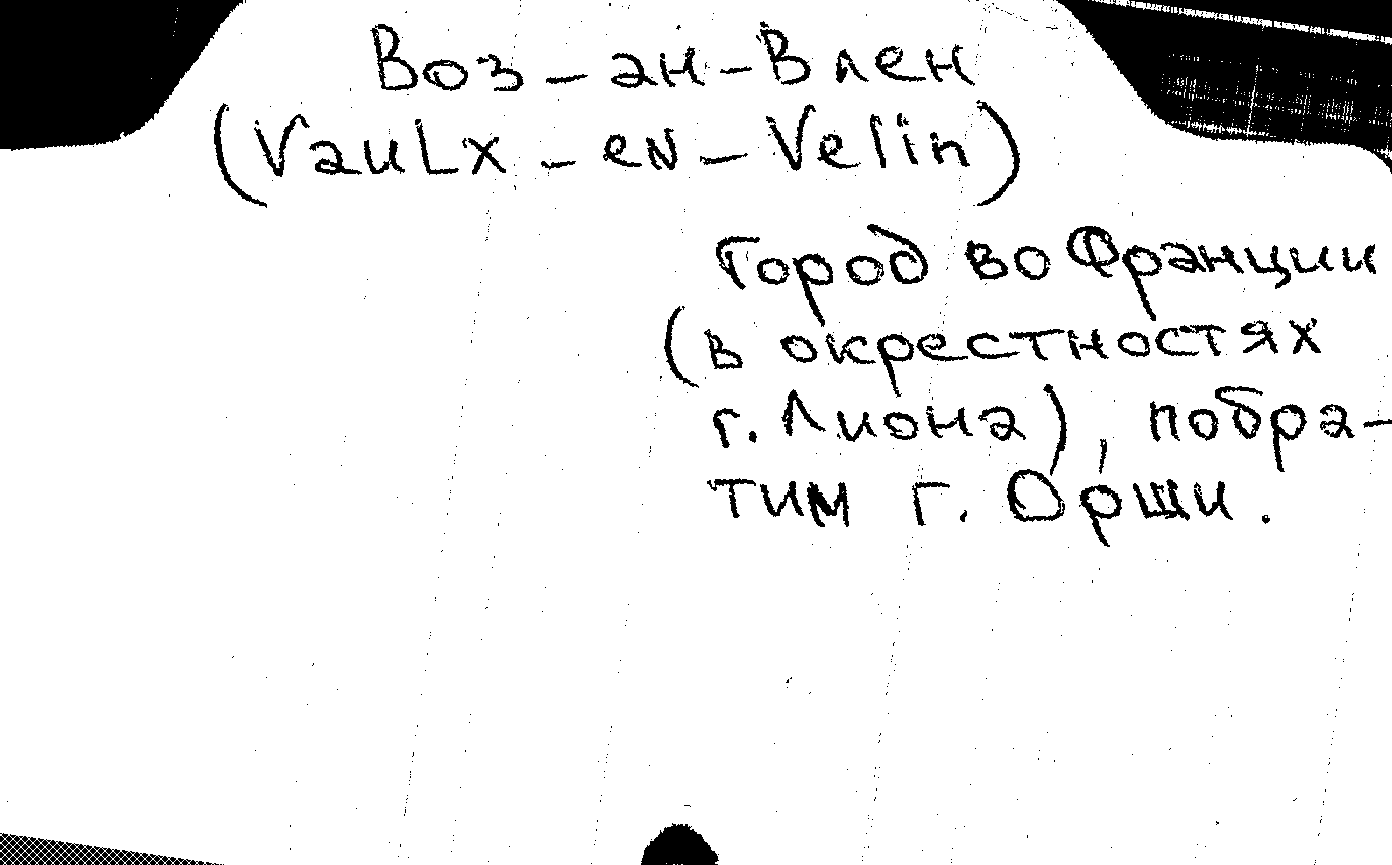 Воз-ан-Влен
(Vaulx-en-Velin)
Город во Франции
(в окрестностях
г. Лиона), побра-
тим г. Орши.